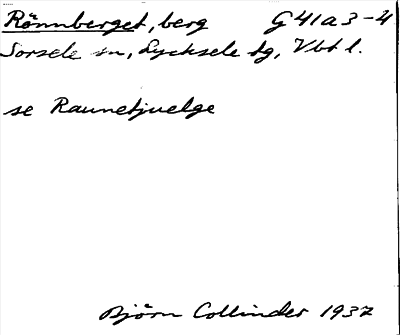 Rönnberget, berg G 41a3-4
Sorsele sn, Lycksele tg, Vbtl.
se Raunetjuelge
Björn Collinder 1937